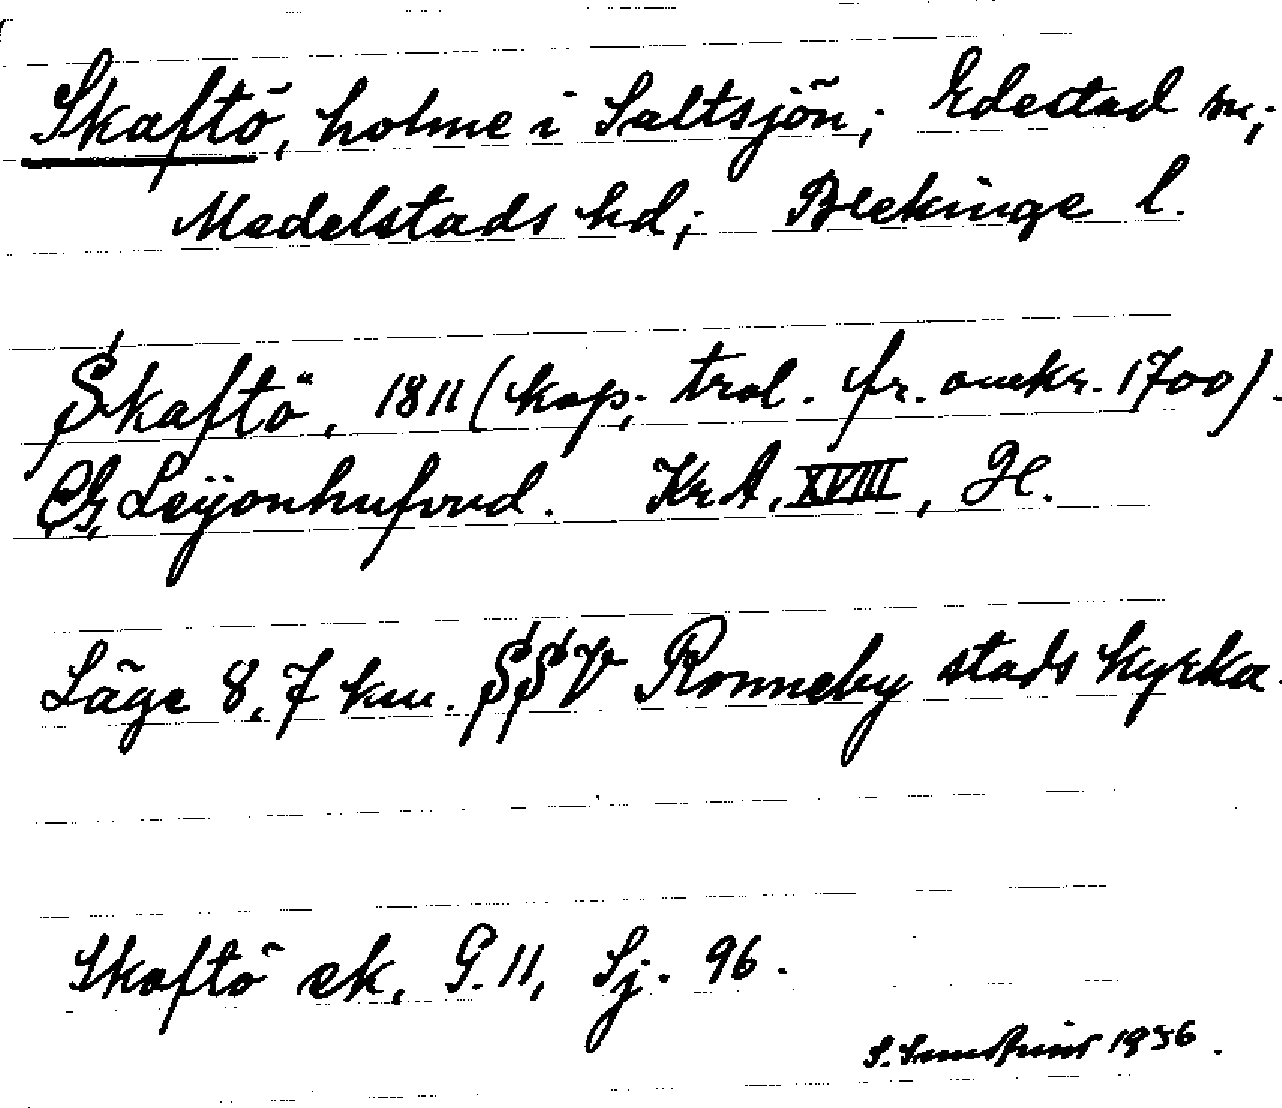 Skaftö, holme i Saltsjön; Edestad sn;
Medelstads hd; Blekinge l.
Skaftö, 1811 (kop; trol. fr. omkr. 1700).
Leijonhufvud. Kr.A. XVIII, H.
Läge 8,7 km. SSV Ronneby stads kyrka.
Skaftö ek, G. 11, Sj. 96.
S. 1936.